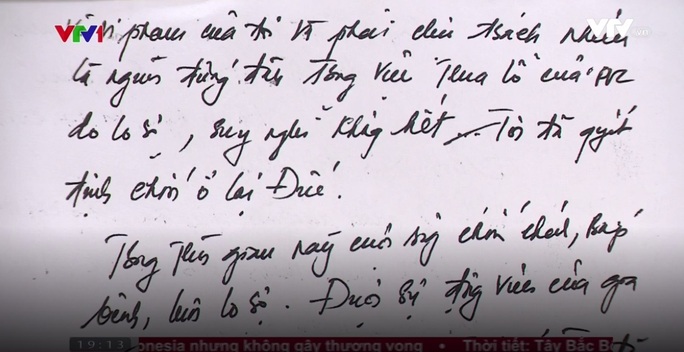 VTV1
VTV.vn
phạm của tôi và phải chịu trách nhiệm
là người đứng đầu trong việc thua lỗ của PVC
do lo sợ, suy nghĩ không hết Tôi đã quyết
định trốn ở lại Đức.
Trong thời gian này cuộc sống bấp
bênh, luôn lo sợ. Dưới sự động viên của gia
19:13 onesia nhưng không gây thương vong • Thời tiết: Tây Bắc B